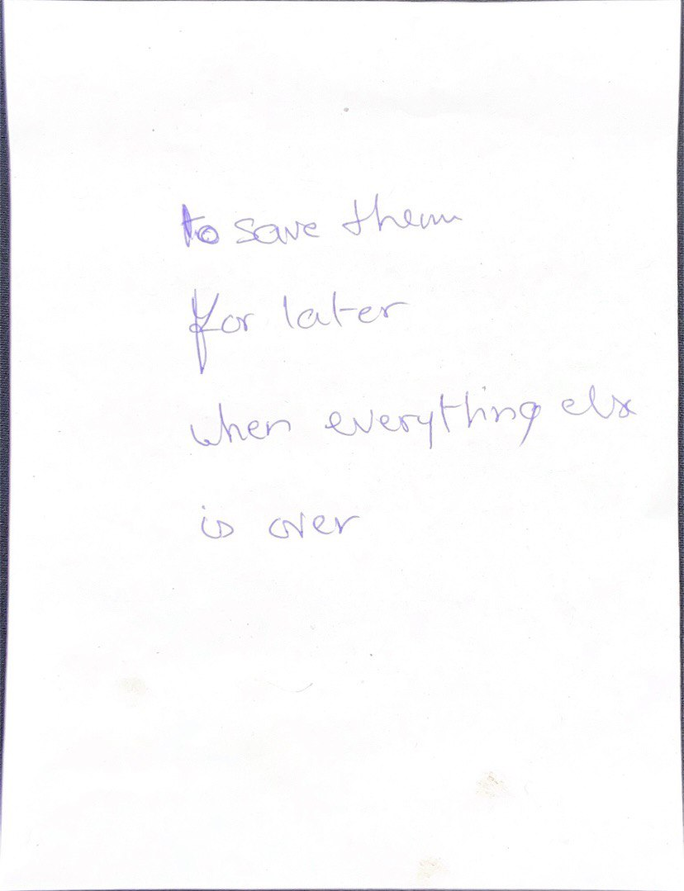 to save them
for later
when everything else
is over